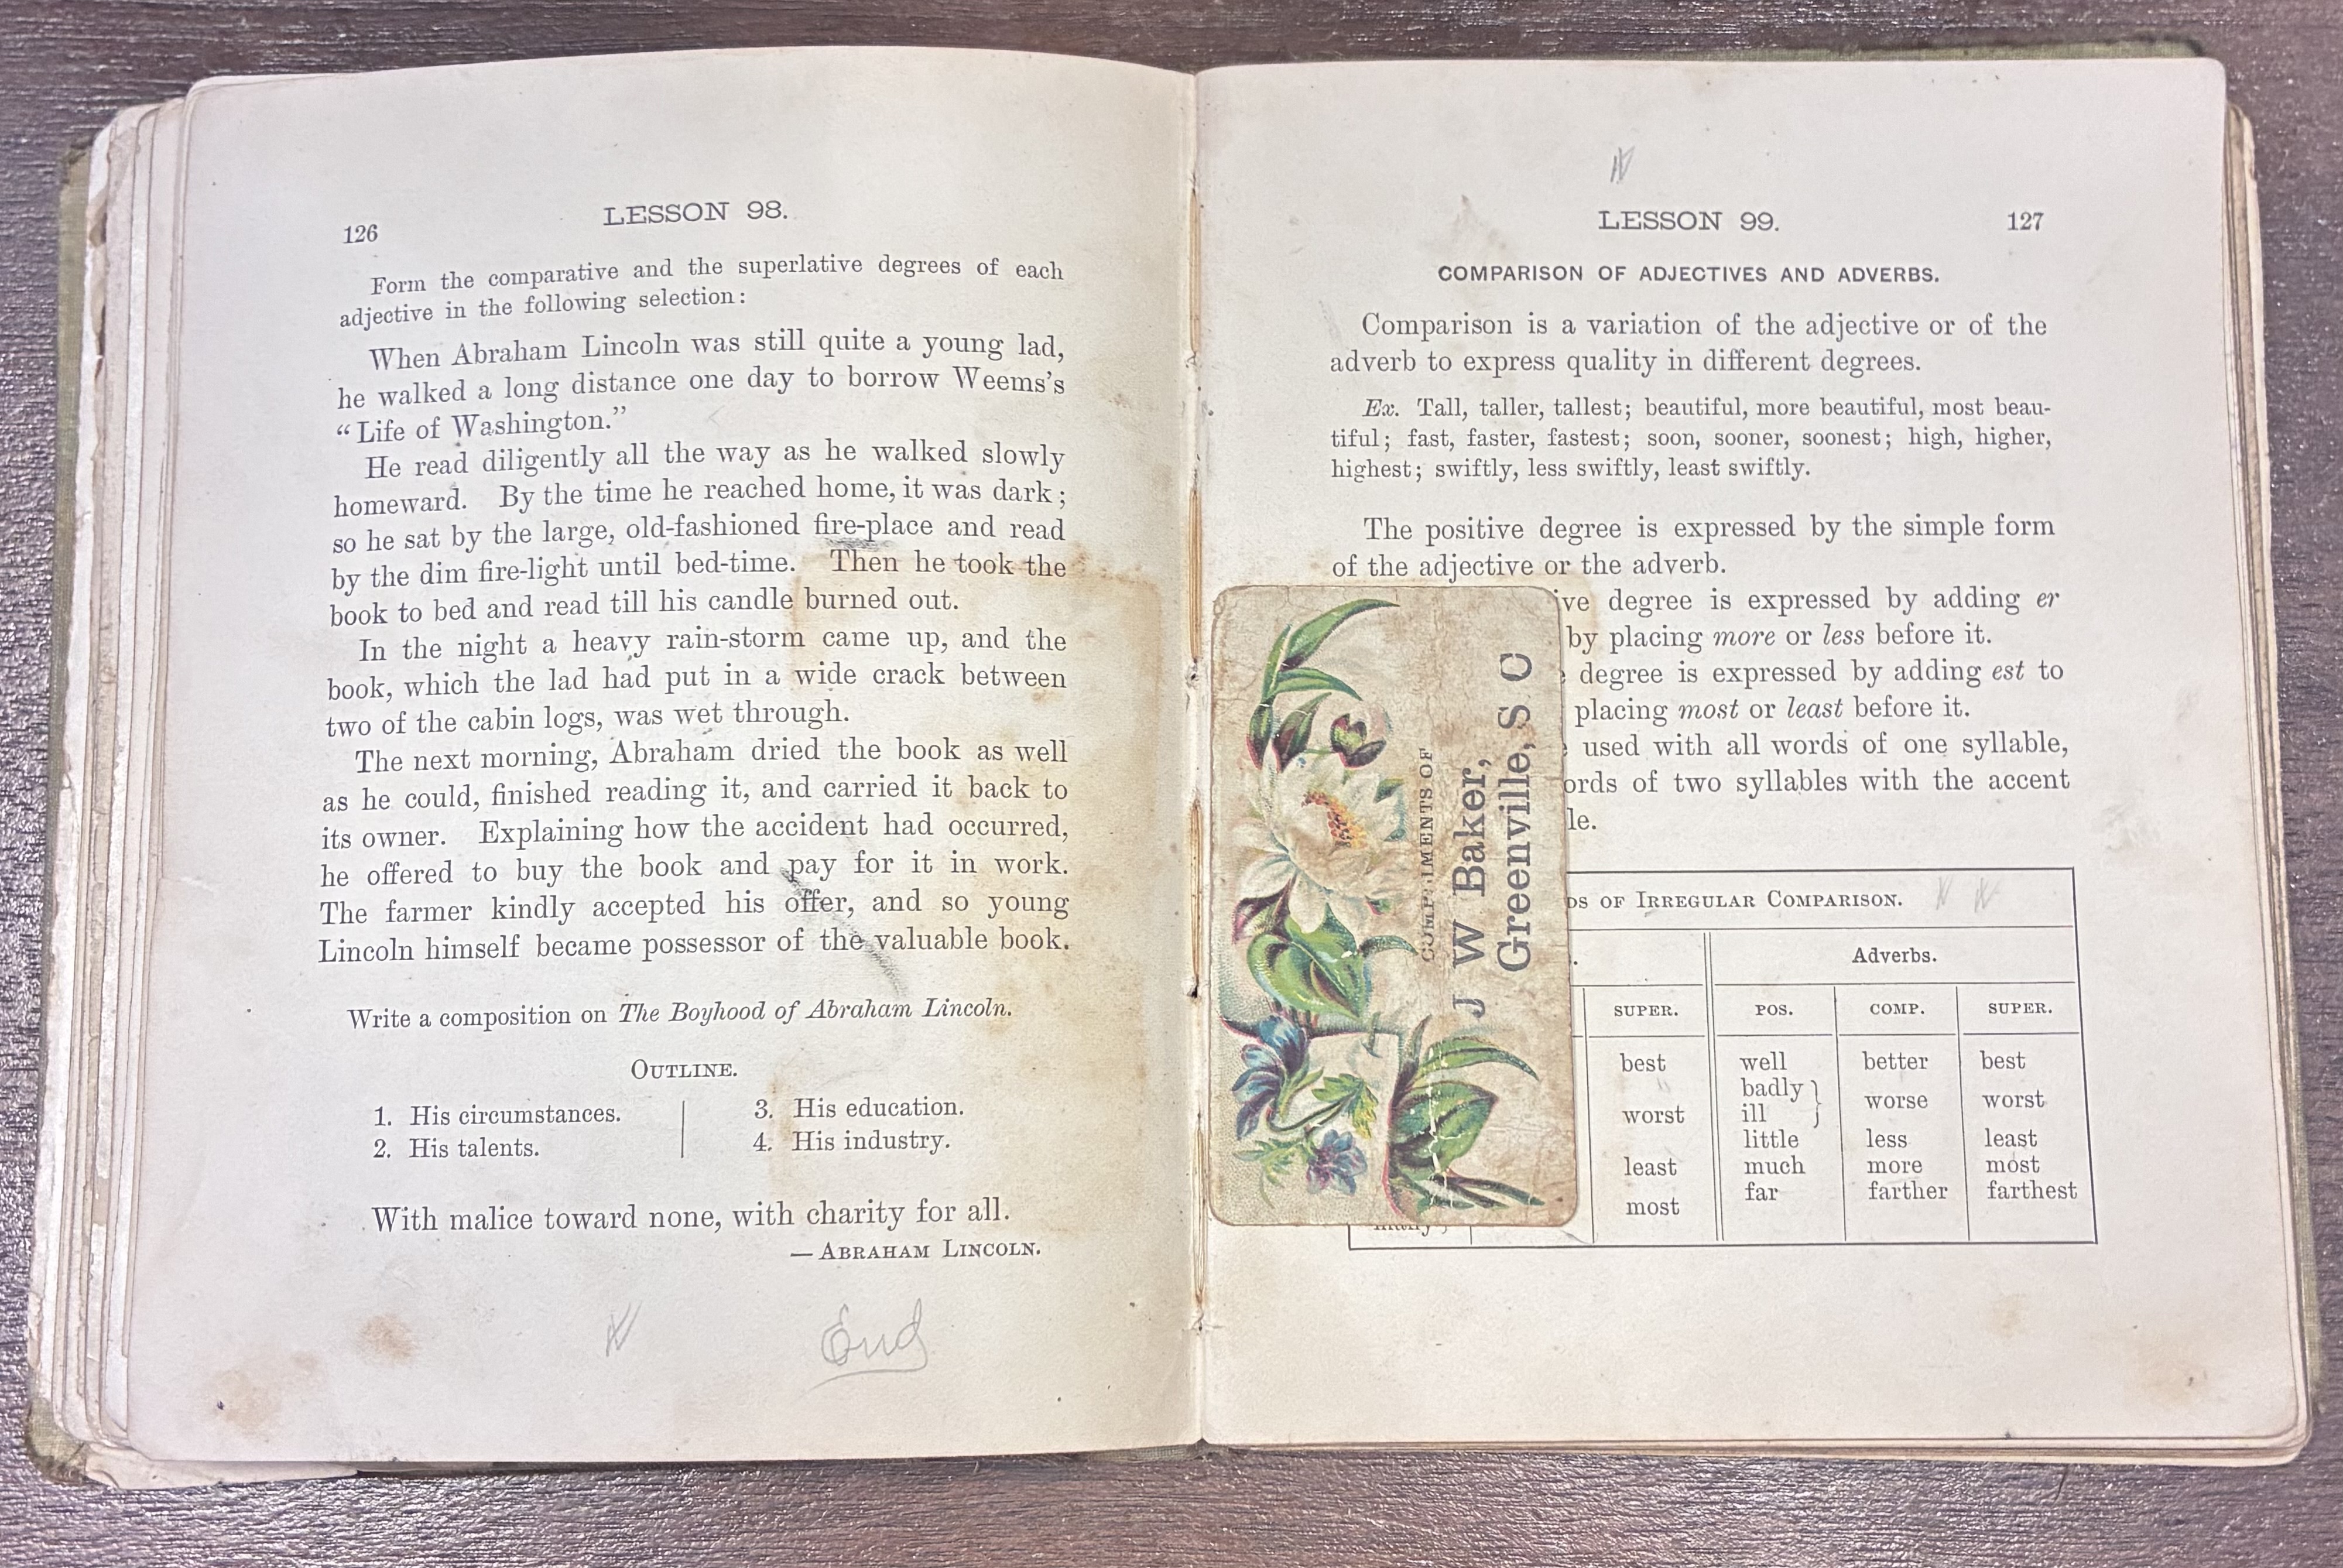 126
LESSON 98.
Form the comparative and the superlative degrees of each
adjective in the following selection:
When Abraham Lincoln was still quite a young lad,
he walked a long distance one day to borrow Weems's
"Life of Washington."
He read diligently all the way as he walked slowly
homeward. By the time he reached home, it was dark;
so he sat by the large, old-fashioned fire-place and read
by the dim fire-light until bed-time. Then he took the
book to bed and read till his candle burned out.
In the night a heavy rain-storm came up, and the
book, which the lad had put in a wide crack between
two of the cabin logs, was wet through.
The next morning, Abraham dried the book as well
as he could, finished reading it, and carried it back to
its owner. Explaining how the accident had occurred,
he offered to buy the book and pay for it in work.
The farmer kindly accepted his offer, and so young
Lincoln himself became possessor of the valuable book.
Write a composition on The Boyhood of Abraham Lincoln.
OUTLINE.
1. His circumstances.
2. His talents.
3. His education.
4. His industry.
With malice toward none, with charity for all.
— ABRAHAM LINCOLN.
End
LESSON 99.
127
COMPARISON OF ADJECTIVES AND ADVERBS.
Comparison is a variation of the adjective or of the
adverb to express quality in different degrees.
Ex. Tall, taller, tallest; beautiful, more beautiful, most beau-
tiful; fast, faster, fastest; soon, sooner, soonest; high, higher,
highest; swiftly, less swiftly, least swiftly.
The positive degree is expressed by the simple form
of the adjective or the adverb.
degree is expressed by adding er
by placing more or less before it.
degree is expressed by adding est to
placing most or least before it.
used with all words of one syllable,
of two syllables with the accent
COMPLIMENTS OF
J W Baker,
Greenville, S C
OF IRREGULAR COMPARISON.
Adverbs.
SUPER. POS. COMP. SUPER.
best well better best
badly
worst ill worse worst
little less least
least much more most
far farther farthest
most